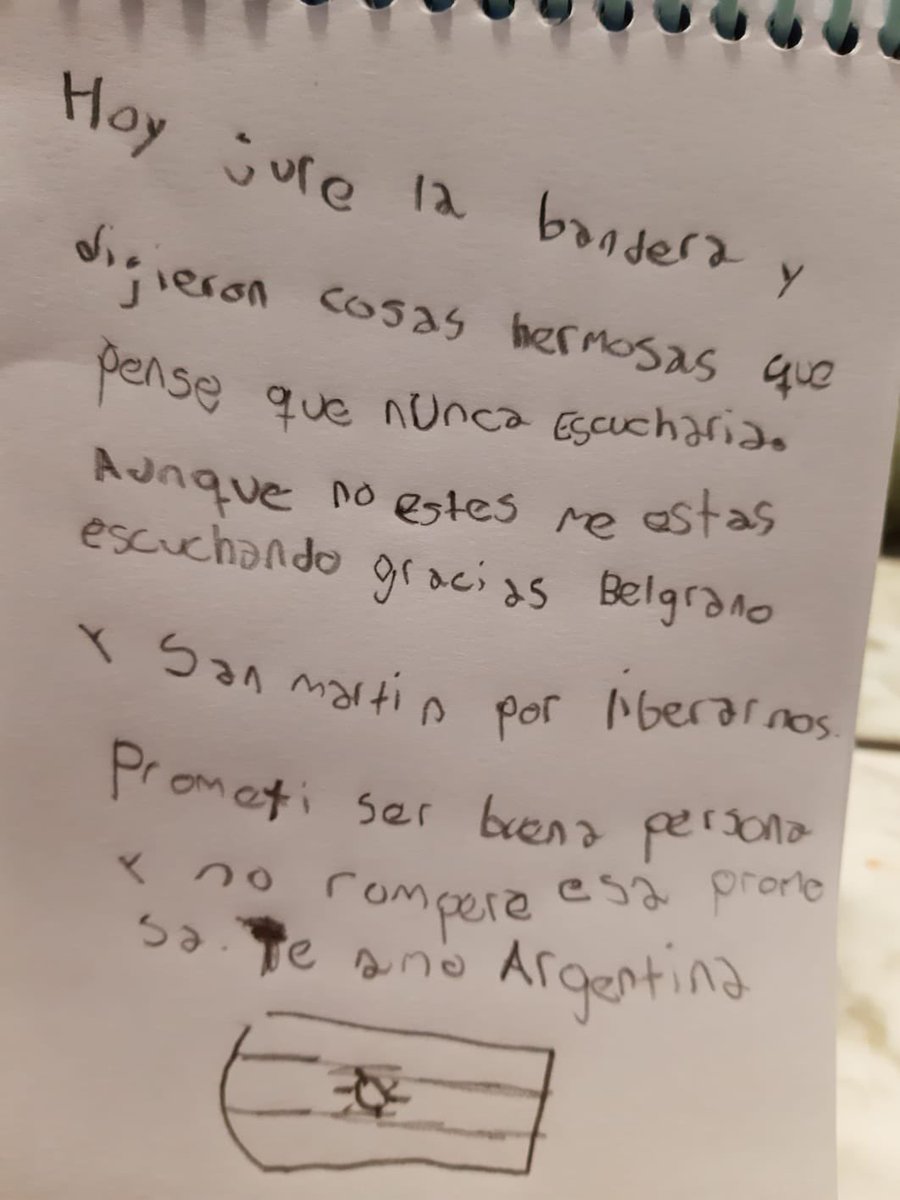 Hoy jure la bandera y
digieron cosas hermosas que
pense que nunca Escucharia.
Aunque no estes me estas
escuchando gracias Belgrano
Y San martin por liberarnos.
Prometi ser buena persona
Y no rompere esa prome
sa. Te amo Argentina